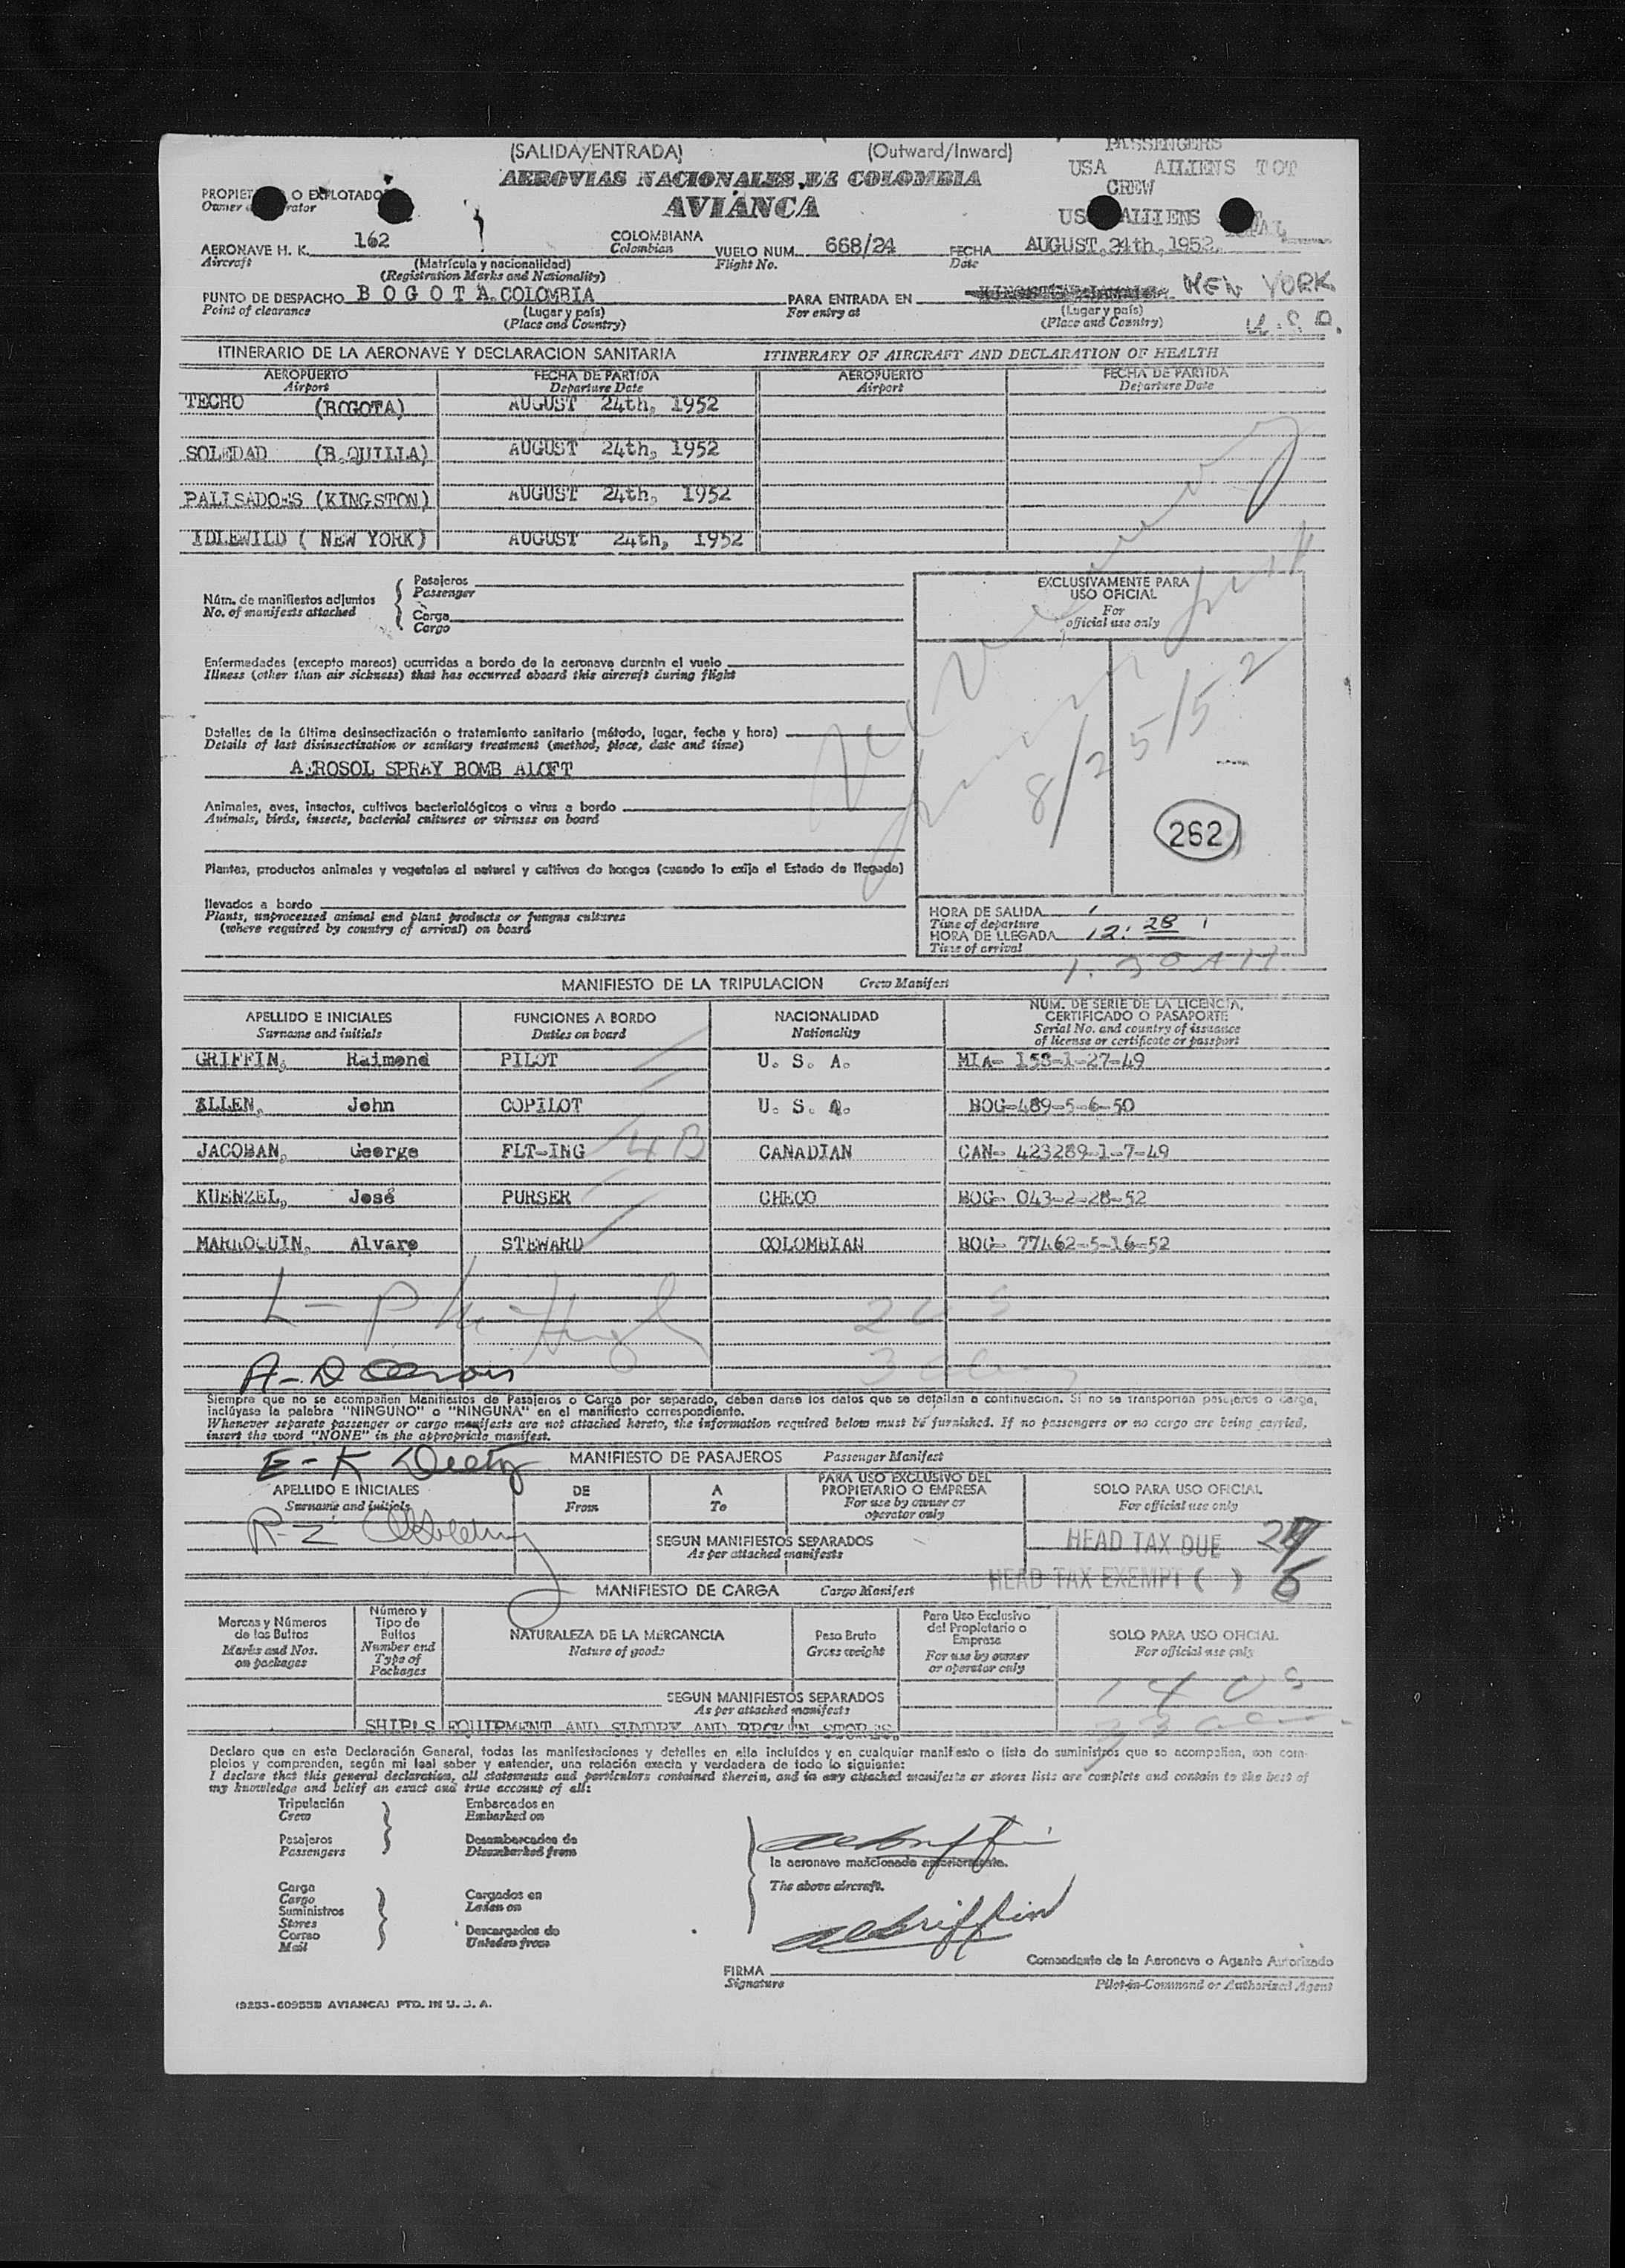 (SALIDA/ENTRADA) (Outward/Inward) PASSENGERS
AEROVIAS NACIONALES DE COLOMBIA USA AILIENS TOT
PROPIET O EXPLOTADO AVIANCA CREW
Owner rator US ALIIENS
AERONAVE H. K. 162 COLOMBIANA VUELO NUM. 668/24 FECHA AUGUST, 24th, 1952.
Aircraft (Matrícula y nacionalidad) Colombian Flight No. Date
(Registration Marks and Nationality)
PUNTO DE DESPACHO B O G O T A, COLOMBIA PARA ENTRADA EN KINGSTON JAMAICA NEW YORK
Point of clearance (Lugar y país) For entry at (Lugar y país) U.S.A.
(Place and Country) (Place and Country)
ITINERARIO DE LA AERONAVE Y DECLARACION SANITARIA ITINERARY OF AIRCRAFT AND DECLARATION OF HEALTH
AEROPUERTO FECHA DE PARTIDA AEROPUERTO FECHA DE PARTIDA
Airport Departure Date Airport Departure Date
TECHO (BOGOTA) AUGUST 24th, 1952
SOLEDAD (B.QUILLA) AUGUST 24th, 1952
PALISADOES (KINGSTON) AUGUST 24th, 1952
IDLEWILD ( NEW YORK) AUGUST 24th, 1952
Núm. de manifiestos adjuntos
No. of manifests attached
Pasajeros
Passenger
Carga
Cargo
EXCLUSIVAMENTE PARA
USO OFICIAL
For
official use only
8/25/52
262
Enfermedades (excepto mareos) ocurridas a bordo de la aeronave durante el vuelo
Illness (other than air sickness) that has occurred aboard this aircraft during flight
Detalles de la última desinsectización o tratamiento sanitario (método, lugar, fecha y hora)
Details of last disinsectization or sanitary treatment (method, place, date and time)
AEROSOL SPRAY BOMB ALOFT
Animales, aves, insectos, cultivos bacteriológicos o virus a bordo
Animals, birds, insects, bacterial cultures or viruses on board
Plantas, productos animales y vegetales al natural y cultivos de hongos (cuando lo exija el Estado de llegada)
llevados a bordo
Plants, unprocessed animal and plant products or fungus cultures
(where required by country of arrival) on board
HORA DE SALIDA
Time of departure
HORA DE LLEGADA 12:28
Time of arrival
1.30 AM
MANIFIESTO DE LA TRIPULACION Crew Manifest
APELLIDO E INICIALES FUNCIONES A BORDO NACIONALIDAD NUM. DE SERIE DE LA LICENCIA,
CERTIFICADO O PASAPORTE
Surname and initials Duties on board Nationality Serial No. and country of issuance
of license or certificate or passport
GRIFFIN, Raimond PILOT U. S. A. MIA- 153-1-27-49
ALLEN, John COPILOT U. S. A. BOG-489-5-6-50
JACOBAN, George FLT-ING 4B CANADIAN CAN- 423289-1-7-49
KUENZEL, José PURSER CHECO BOG- 043-2-28-52
MARROQUIN, Alvaro STEWARD COLOMBIAN BOG- 77462-5-16-52
Siempre que no se acompañen Manifiestos de Pasajeros o Carga por separado, deben darse los datos que se detallan a continuación. Si no se transportan pasajeros o carga,
inclúyase la palabra "NINGUNO" o "NINGUNA" en el manifiesto correspondiente.
Whenever separate passenger or cargo manifests are not attached hereto, the information required below must be furnished. If no passengers or no cargo are being carried,
insert the word "NONE" in the appropriate manifest.
MANIFIESTO DE PASAJEROS Passenger Manifest
APELLIDO E INICIALES DE A PARA USO EXCLUSIVO DEL SOLO PARA USO OFICIAL
PROPIETARIO O EMPRESA
Surname and initials From To For use by owner or For official use only
operator only
SEGUN MANIFIESTOS SEPARADOS HEAD TAX DUE
As per attached manifests
HEAD TAX EXEMPT ( ) 6
MANIFIESTO DE CARGA Cargo Manifest
Marcas y Números Número y NATURALEZA DE LA MERCANCIA Peso Bruto Para Uso Exclusivo SOLO PARA USO OFICIAL
de los Bultos Tipo de Nature of goods Gross weight del Propietario o For official use only
Marks and Nos. Bultos Empresa
on packages Number and For use by owner
Type of or operator only
Packages
SEGUN MANIFIESTOS SEPARADOS
As per attached manifests
SHIP'S EQUIPMENT AND SUNDRY AND BROKEN STORES.
Declaro que en esta Declaración General, todas las manifestaciones y detalles en ella incluídos y en cualquier manifiesto o lista de suministros que se acompañen, son com-
pletos y comprenden, según mi leal saber y entender, una relación exacta y verdadera de todo lo siguiente:
I declare that this general declaration, all statements and particulars contained therein, and in any attached manifests or stores lists are complete and contain to the best of
my knowledge and belief an exact and true account of all:
Tripulación Embarcados en
Crew Embarked on
Pasajeros Desembarcados de
Passengers Disembarked from
la aeronave mencionada anteriormente.
The above aircraft.
Carga
Cargo Cargados en
Suministros Laden on
Stores
Correo Descargados de
Mail Unladen from
Griffin
Comandante de la Aeronave o Agente Autorizado
FIRMA
Signature Pilot-in-Command or Authorized Agent
(9253-60955B AVIANCA) PTD. IN U. S. A.